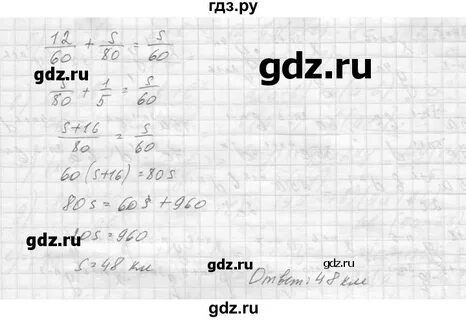 гдз.ру
12/60 + s/80 = s/60
s/80 + 1/5 = s/60
s+16/80 = s/60
60(s+16) = 80s
80s = 60s + 960
20s = 960
s = 48 км
Ответ: 48 км
gdz.ru
gdz.ru
gdz.ru
gdz.ru
gdz.ru
gdz.ru